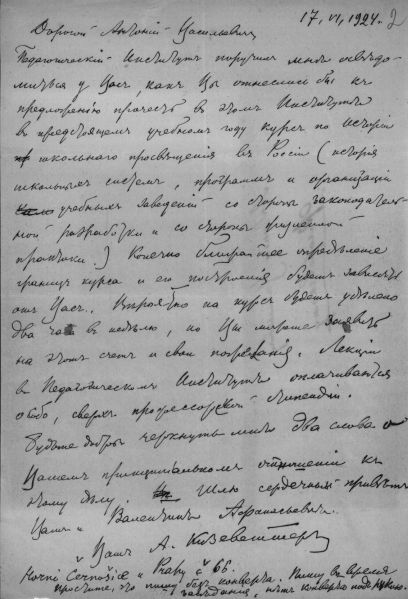 17. VI, 1924. 2
Дорогой Антоній Васильевич
Педагогическій Институтъ поручилъ мнѣ освѣдо-
миться у Васъ, какъ Вы отнеслись бы къ
предложенію прочесть въ этомъ Институтѣ
въ предстоящемъ учебномъ году курсъ по исторіи
школьнаго просвѣщенія въ Россіи (исторія
школьныхъ системъ, программъ и организаціи
учебныхъ заведеній со стороны законодатель-
ной разработки и со стороны жизненной
практики.) Конечно ближайшее опредѣленіе
границъ курса и его построенія будетъ зависѣть
отъ Васъ. Вѣроятно на курсъ будетъ удѣлено
два часа въ недѣлю, но Вы можете заявить
на этотъ счетъ и свои пожеланія. Лекціи
въ Педагогическомъ Институтѣ оплачиваются
особо, сверхъ профессорской стипендіи.
Будьте добры черкнуть мнѣ два слова о
Вашемъ принципіальномъ отношеніи къ
этому дѣлу. Шлю сердечный привѣтъ
Вамъ и Валентинѣ Афанасьевнѣ.
Вашъ А. Кизеветтеръ
Horní Černošice u Prahy č 66.
Простите, что пишу безъ конверта. Пишу во время
засѣданія, нѣтъ конверта подъ рукою.